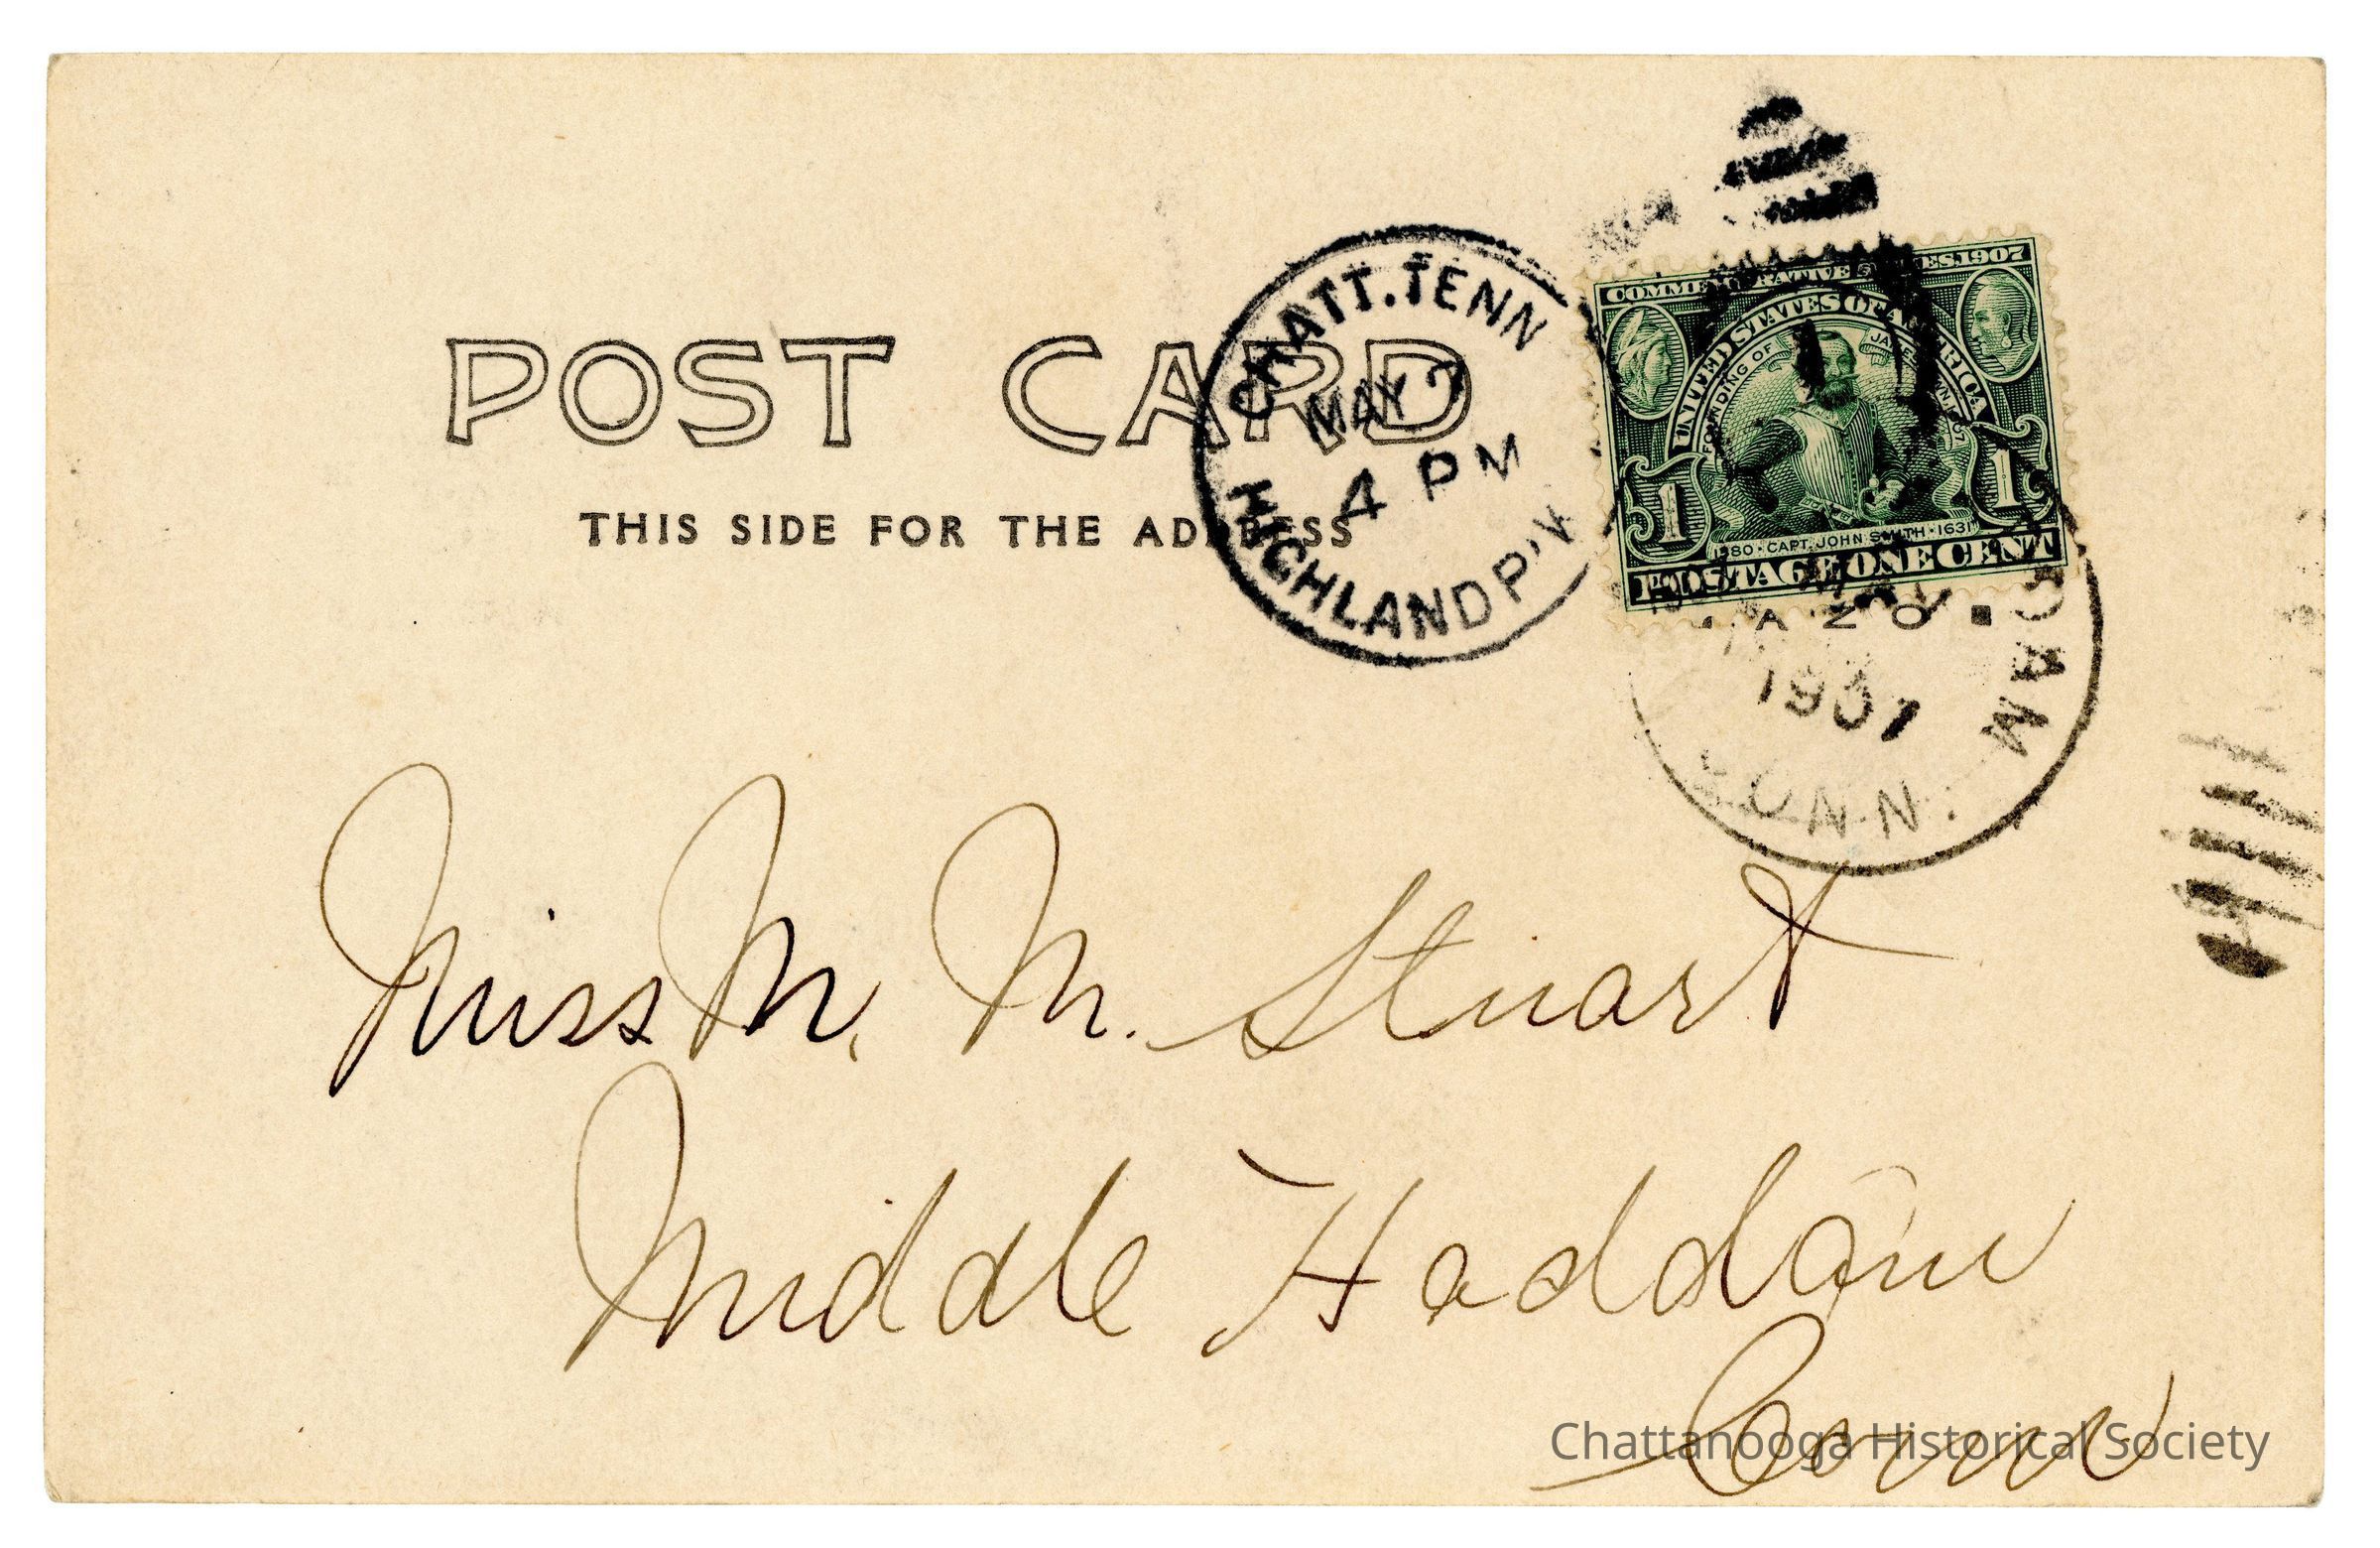 POST CARD
THIS SIDE FOR THE ADDRESS
CHATT. TENN
MAY 7
4 PM
HIGHLAND P'K
COMMEMORATIVE SERIES 1907
UNITED STATES OF AMERICA
FOUNDING OF JAMESTOWN 1607
1 1
1580 · CAPT. JOHN SMITH · 1631
POSTAGE ONE CENT
AZO
1907
CONN.
Miss M. M. Stuart
Middle Haddam
Conn
Chattanooga Historical Society